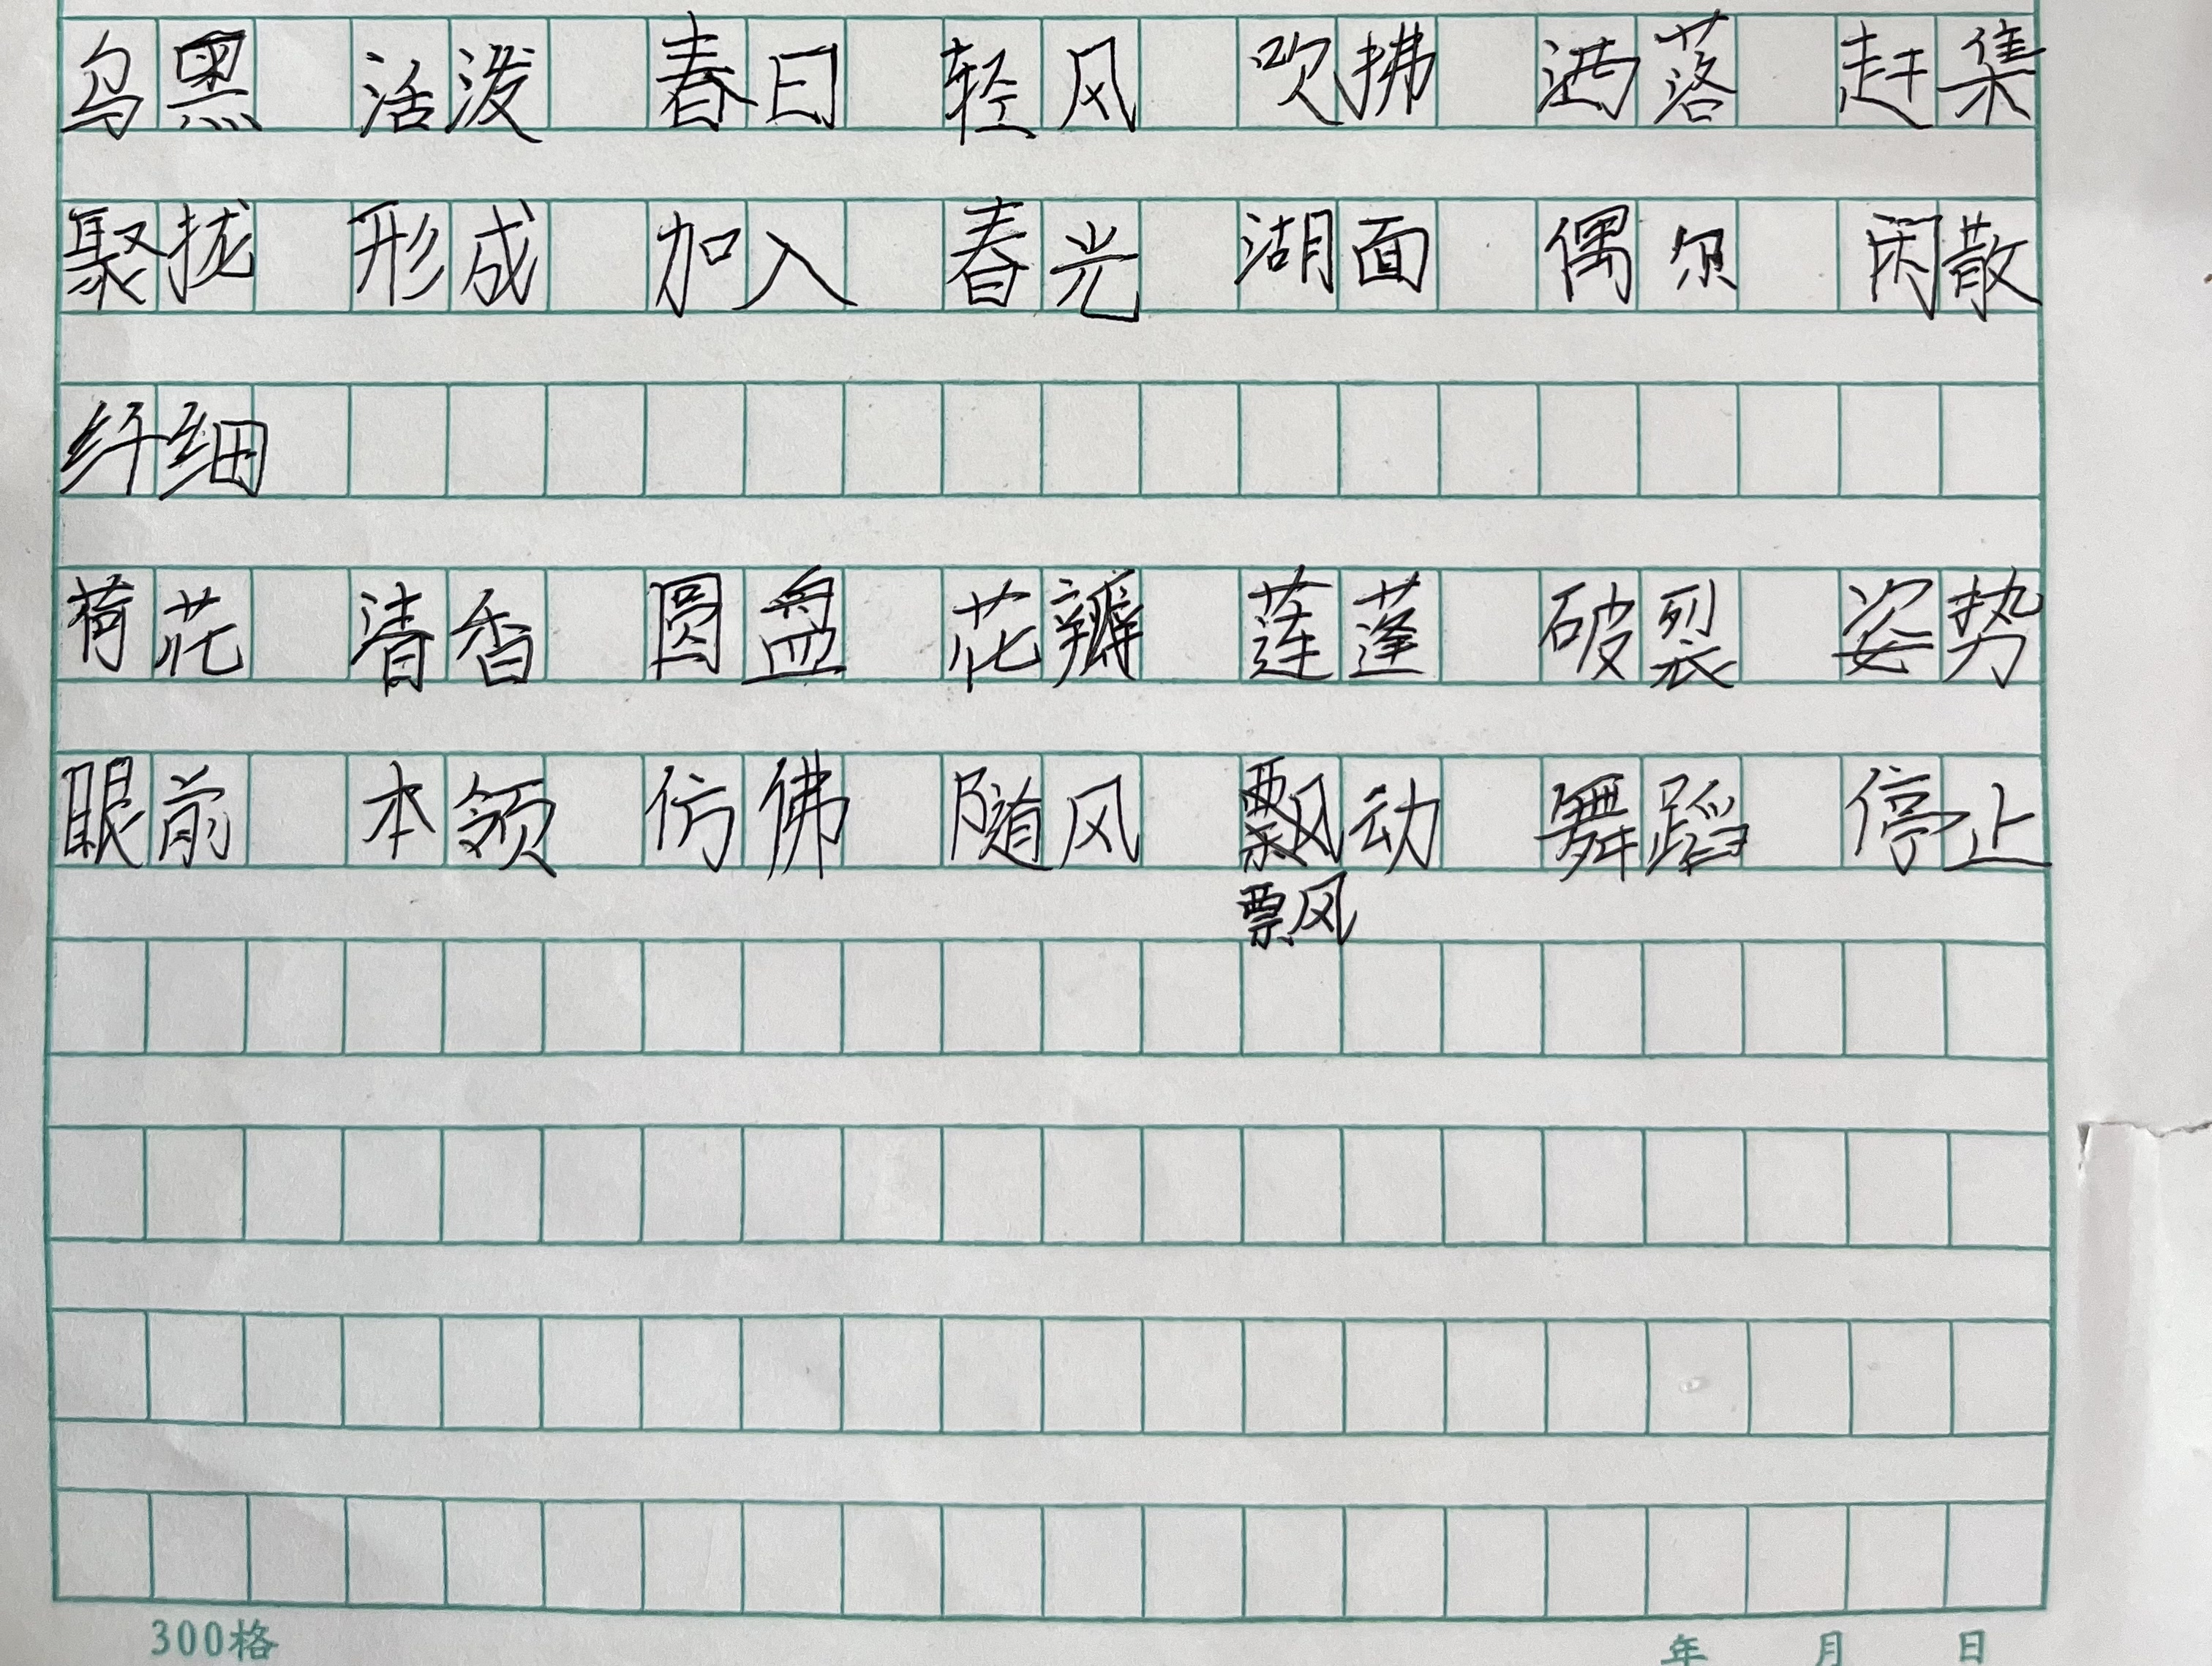 乌黑 活泼 春日 轻风 吹拂 洒落 赶集
聚拢 形成 加入 春光 湖面 偶尔 闲散
纤细
荷花 清香 圆盘 花瓣 莲蓬 破裂 姿势
眼前 本领 仿佛 随风 飘动 舞蹈 停止
飘
300格 年 月 日